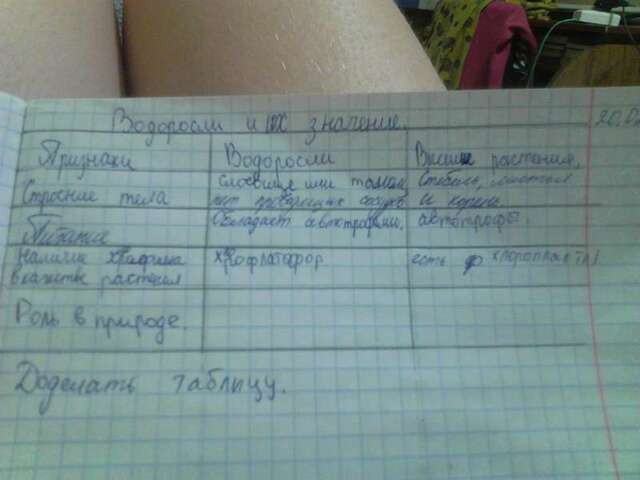 Водоросли и их значение. 20.0
Признаки Водоросли Высшие растения.
Строение тела Слоевище или таллом, Стебель, листья
нет проводящих сосудов и корень
Питание Обладает автотрофами. автотрофы.
Наличие хлорофилла хроматофор есть хлоропласты
в клетках растения
Роль в природе.
Доделать таблицу.